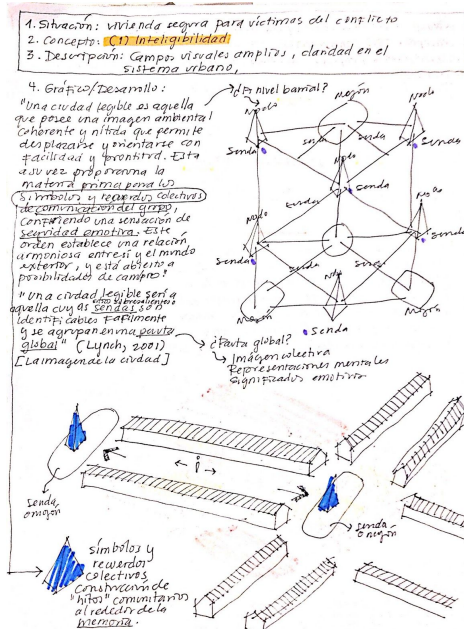 1. Situación: vivienda segura para víctimas del conflicto
2. Concepto: (1) Inteligibilidad
3. Descripción: Campos visuales amplios, claridad en el
sistema urbano,
4. Gráfico/Desarrollo:
"Una ciudad legible es aquella
que posee una imagen ambiental
coherente y nítida que permite
desplazarse y orientarse con
facilidad y prontitud. Esta
a su vez proporciona la
materia prima para los
símbolos y recuerdos colectivos
de comunicación del grupo,
confiriendo una sensación de
seguridad emotiva. Este
orden establece una relación
armoniosa entre sí y el mundo
exterior, y está abierto a
posibilidades de cambio."
"Una ciudad legible sería
aquella cuyas sendas son
identificables fácilmente
y se agrupan en una pauta
global" (Lynch, 2001)
[La imagen de la ciudad]
¿A nivel barrial?
Mojón
Nodo
Nodo
Senda
Senda
senda
senda
Nodo
Senda
Senda
Nodo
Nodo
Senda
Senda
Senda
Senda
Nodo
Mojón
Mojón
Senda
¿Pauta global?
Imagen colectiva
Representaciones mentales
Significados emotivos
senda
o mojón
senda
o mojón
símbolos y
recuerdos
colectivos,
construcción de
"hitos" comunitarios
alrededor de la
memoria.